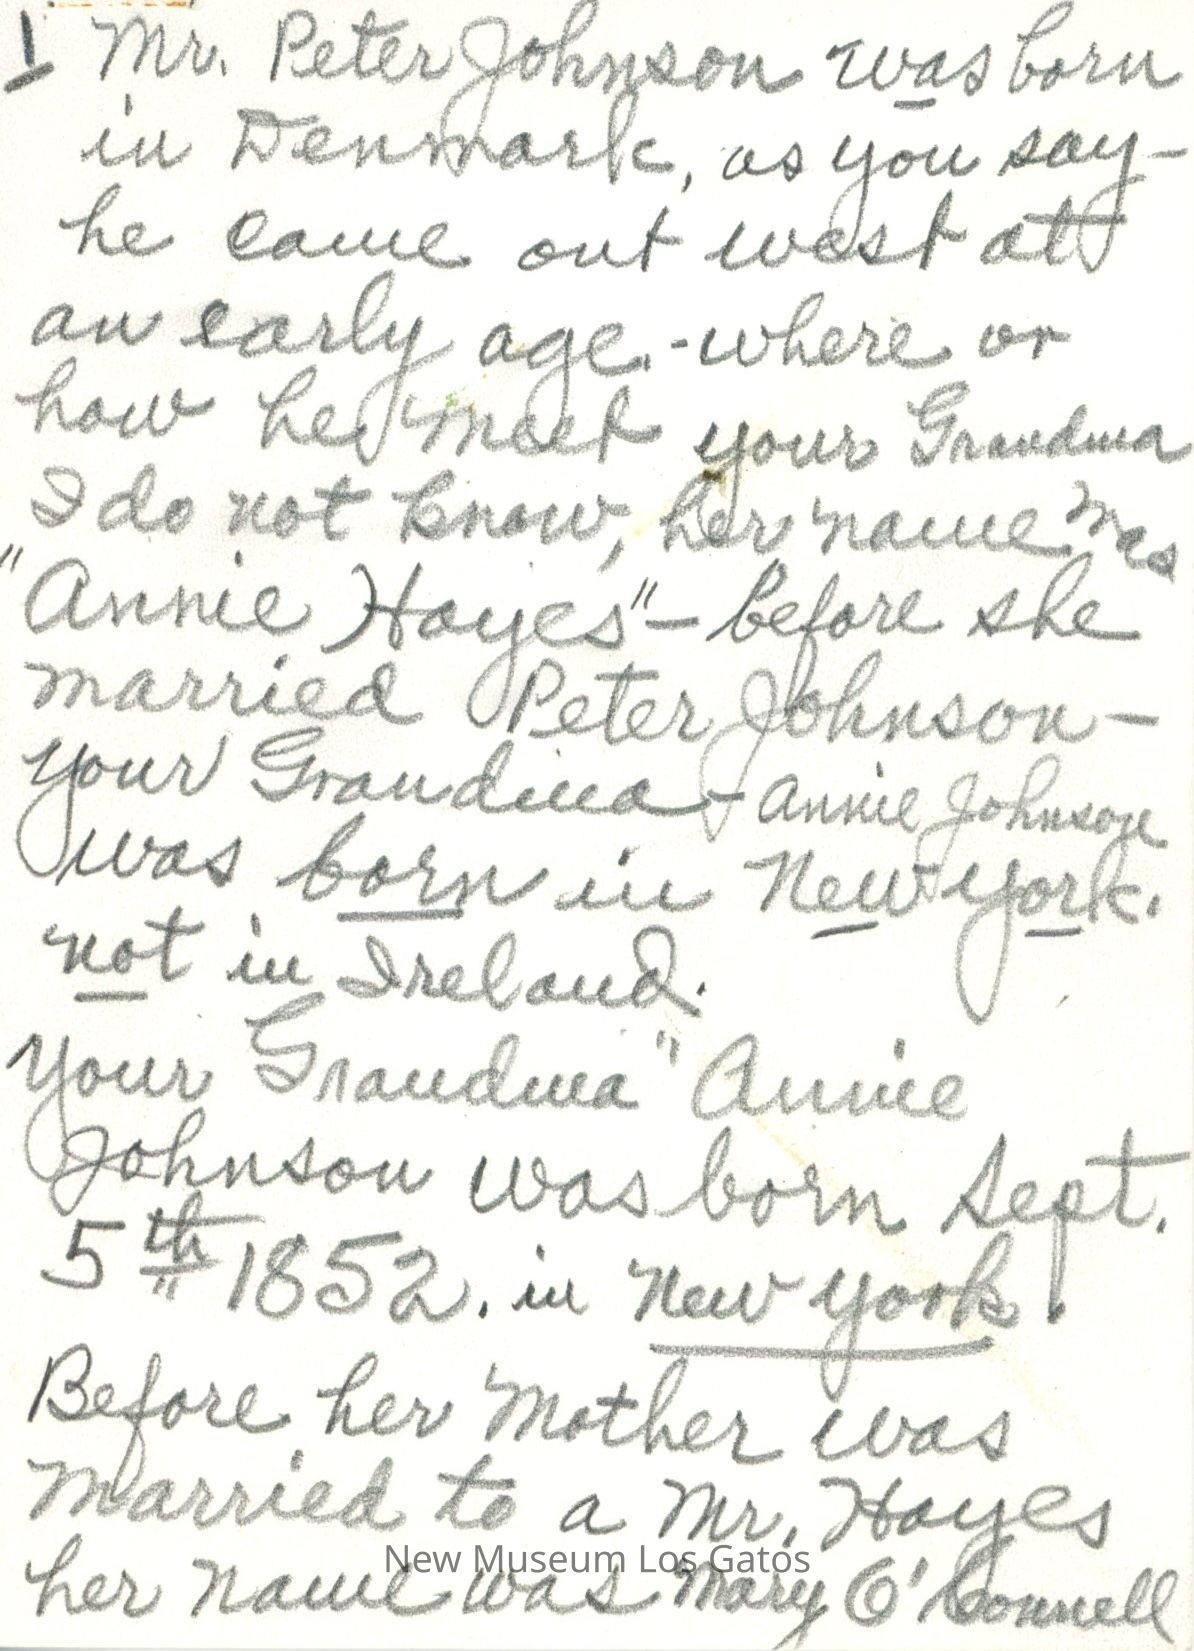 1 Mr. Peter Johnson was born
in Denmark, as you say-
he came out west at
an early age.-where or
how he meet your Grandma
I do not know, her name was
"Annie Hayes"- before she
married Peter Johnson-
your Grandma-Annie Johnson
was born in New York.
not in Ireland.
Your Grandma "Annie
Johnson was born Sept.
5th 1852. in New York.
Before her Mother was
Married to a Mr. Hayes
her name was Mary O'Connell
New Museum Los Gatos